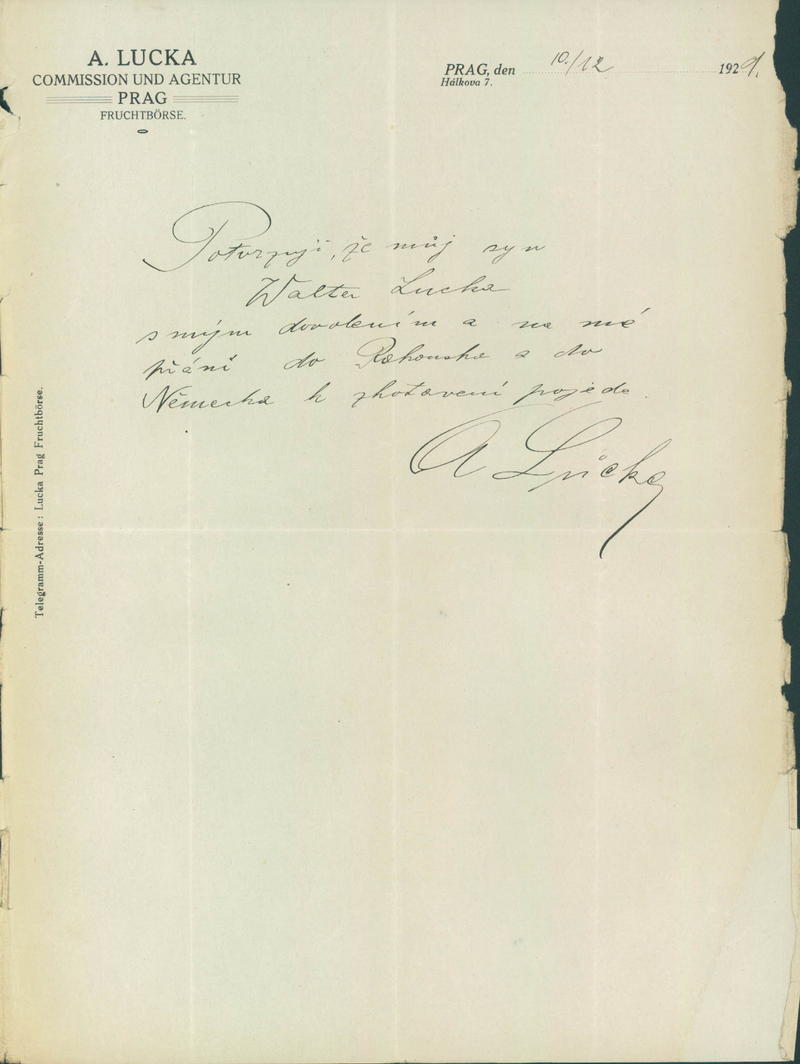 A. LUCKA
COMMISSION UND AGENTUR
PRAG
FRUCHTBÖRSE.
PRAG, den 10./12 1929.
Hálkova 7.
Potvrzuji, že můj syn
Walter Lucka
s mým dovolením a na mé
přání do Rakouska a do
Německa k zhotavení pojede.
A Lucka
Telegramm-Adresse: Lucka Prag Fruchtbörse.